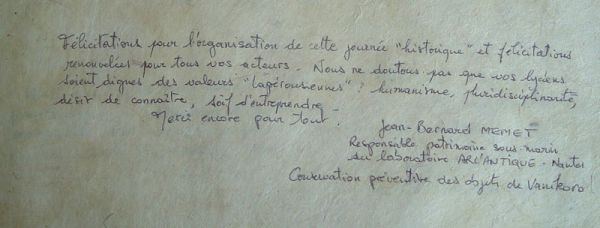 Félicitations pour l'organisation de cette journée "historique" et félicitations
renouvelées pour tous vos acteurs. Nous ne doutons pas que vos lycéens
soient dignes des valeurs "lapérousiennes" : humanisme, pluridisciplinarité,
désir de connaître, soif d'entreprendre –
Merci encore pour tout !
Jean-Bernard MEMET
Responsable patrimoine sous-marin
du laboratoire ARC'ANTIQUE - Nantes
Conservation préventive des objets de Vanikoro !